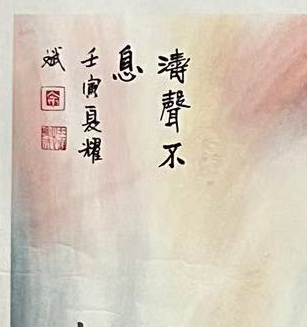 濤聲不
息
壬寅夏耀
斌